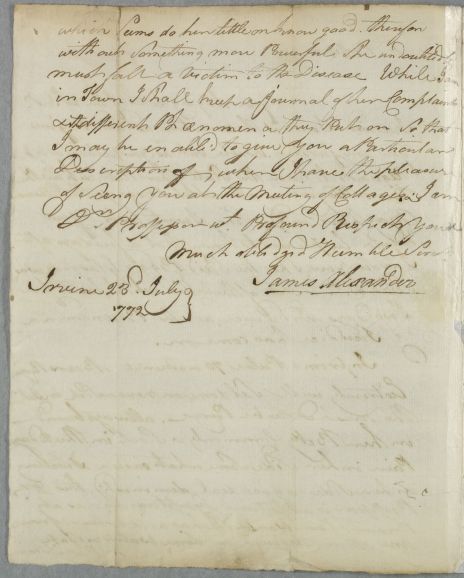 which Seems do her little or know good. therefore
without Something more Powerful She undoubtedly
must fall a Victim to the Disease While I am
in Town I shall keep a Journal of her Complaint
& different Phænomena they Put on So that
I may be enabled to give you a Particular
Description of when I have the pleasure
of Seeing you at the Meeting of Colleges. I am
Dr. Professor wt. Profound Respects Your
Much obledgd Humble Ser
James Alexander
Irvine 23d. July
1772